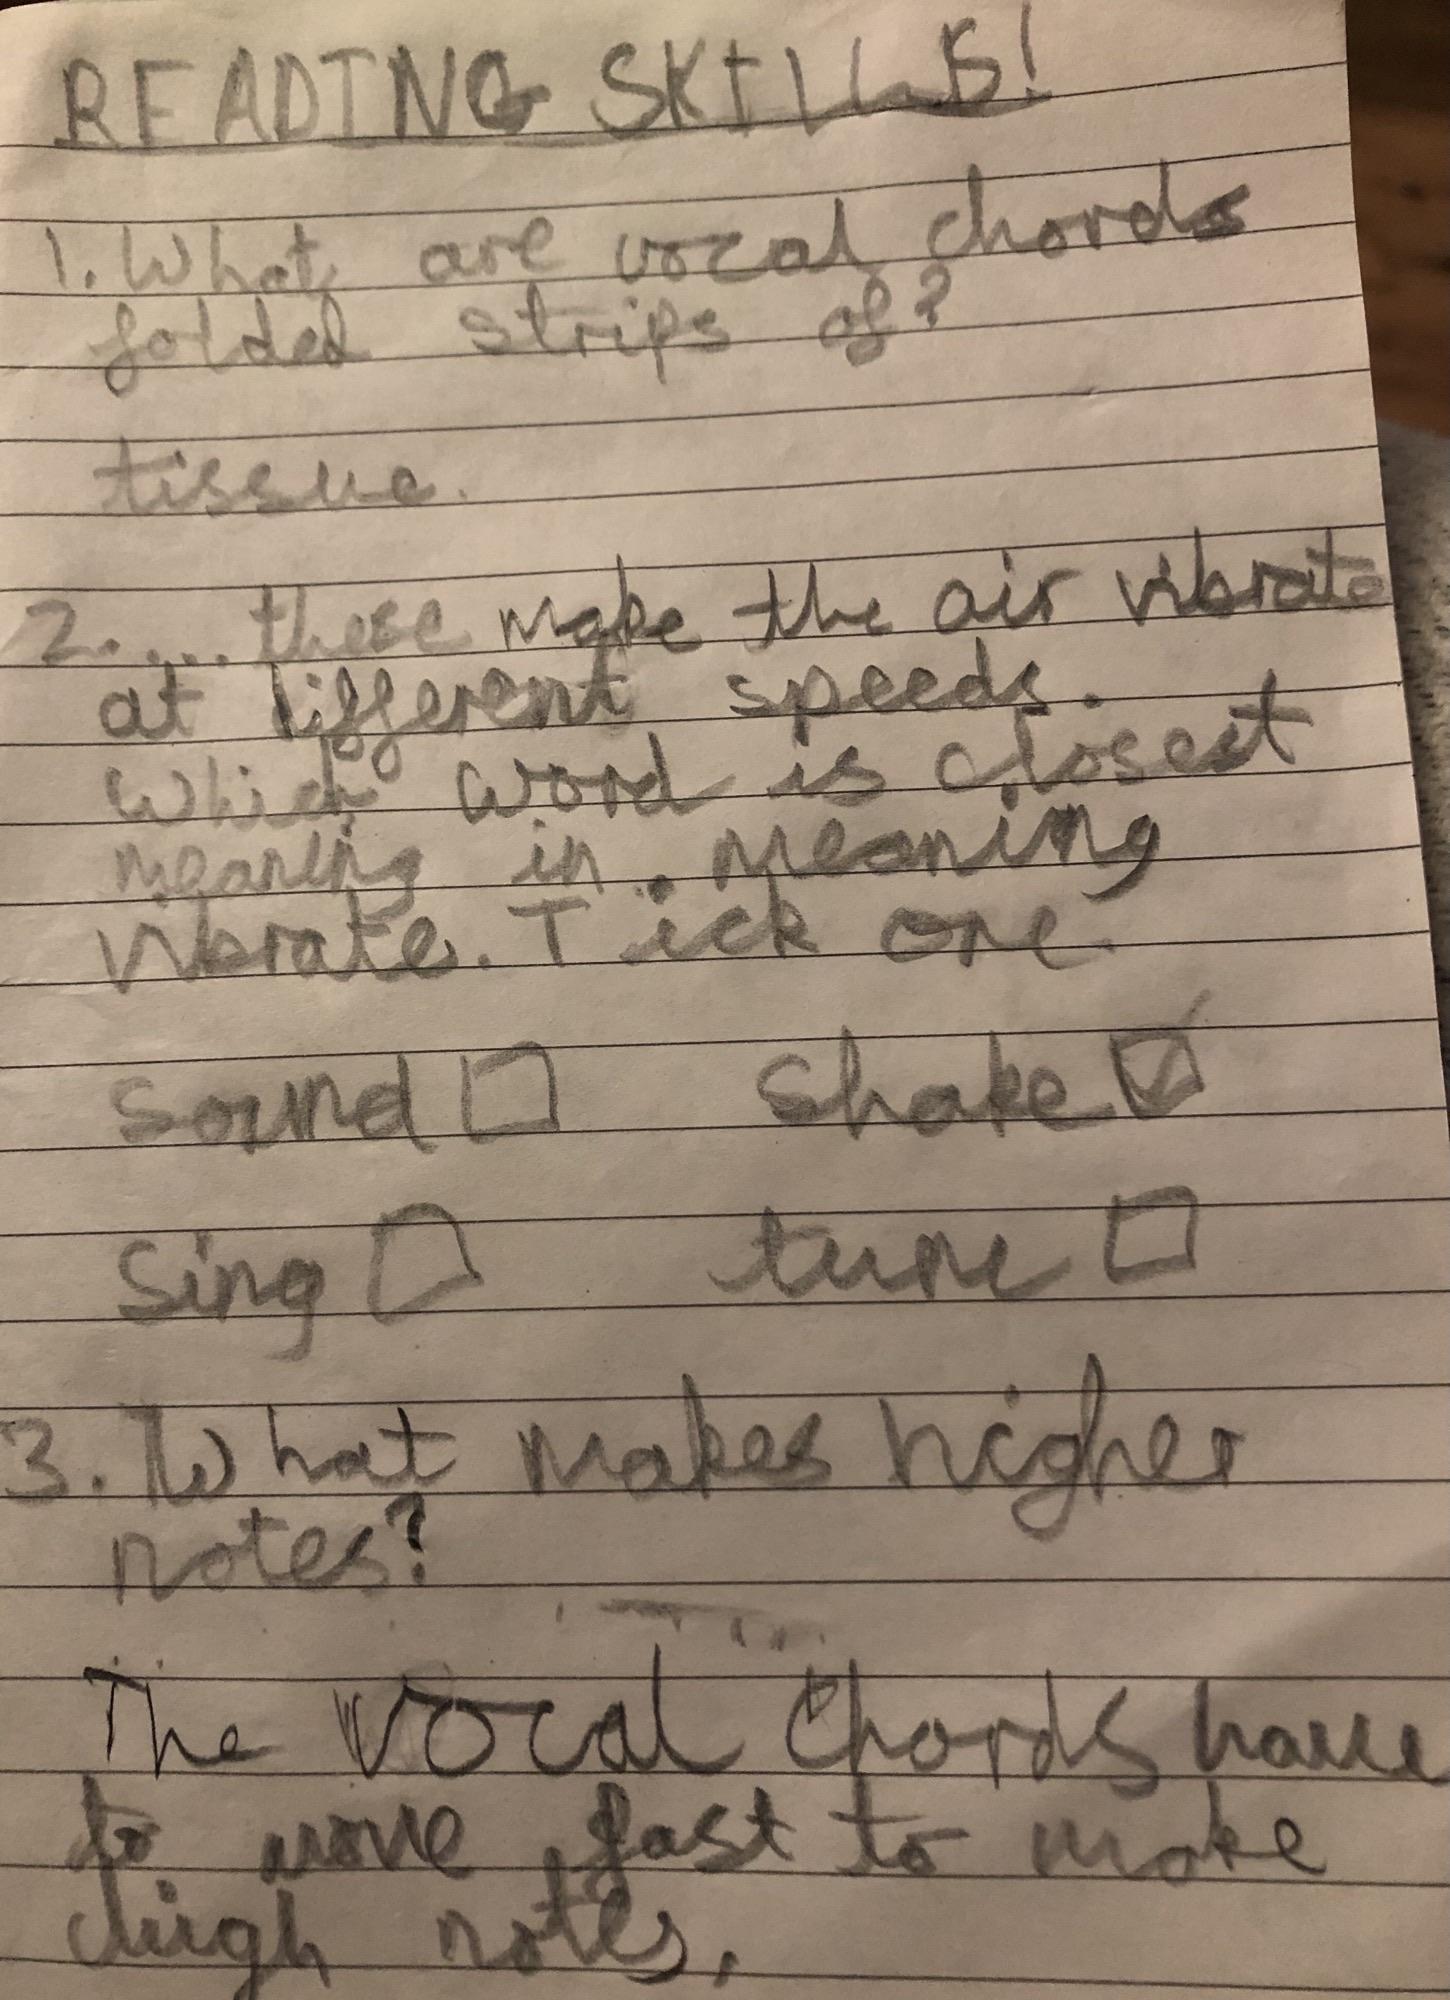 READING SKILLS!
1. What are vocal chords
folded strips of?
tissue.
2. .... these make the air vibrate
at different speeds.
Which word is closest
meaning in. meaning
vibrate. Tick one.
sound ☐ shake ☑
Sing ☐ tune ☐
3. What makes higher
notes?
The vocal chords have
to move fast to make
high notes.